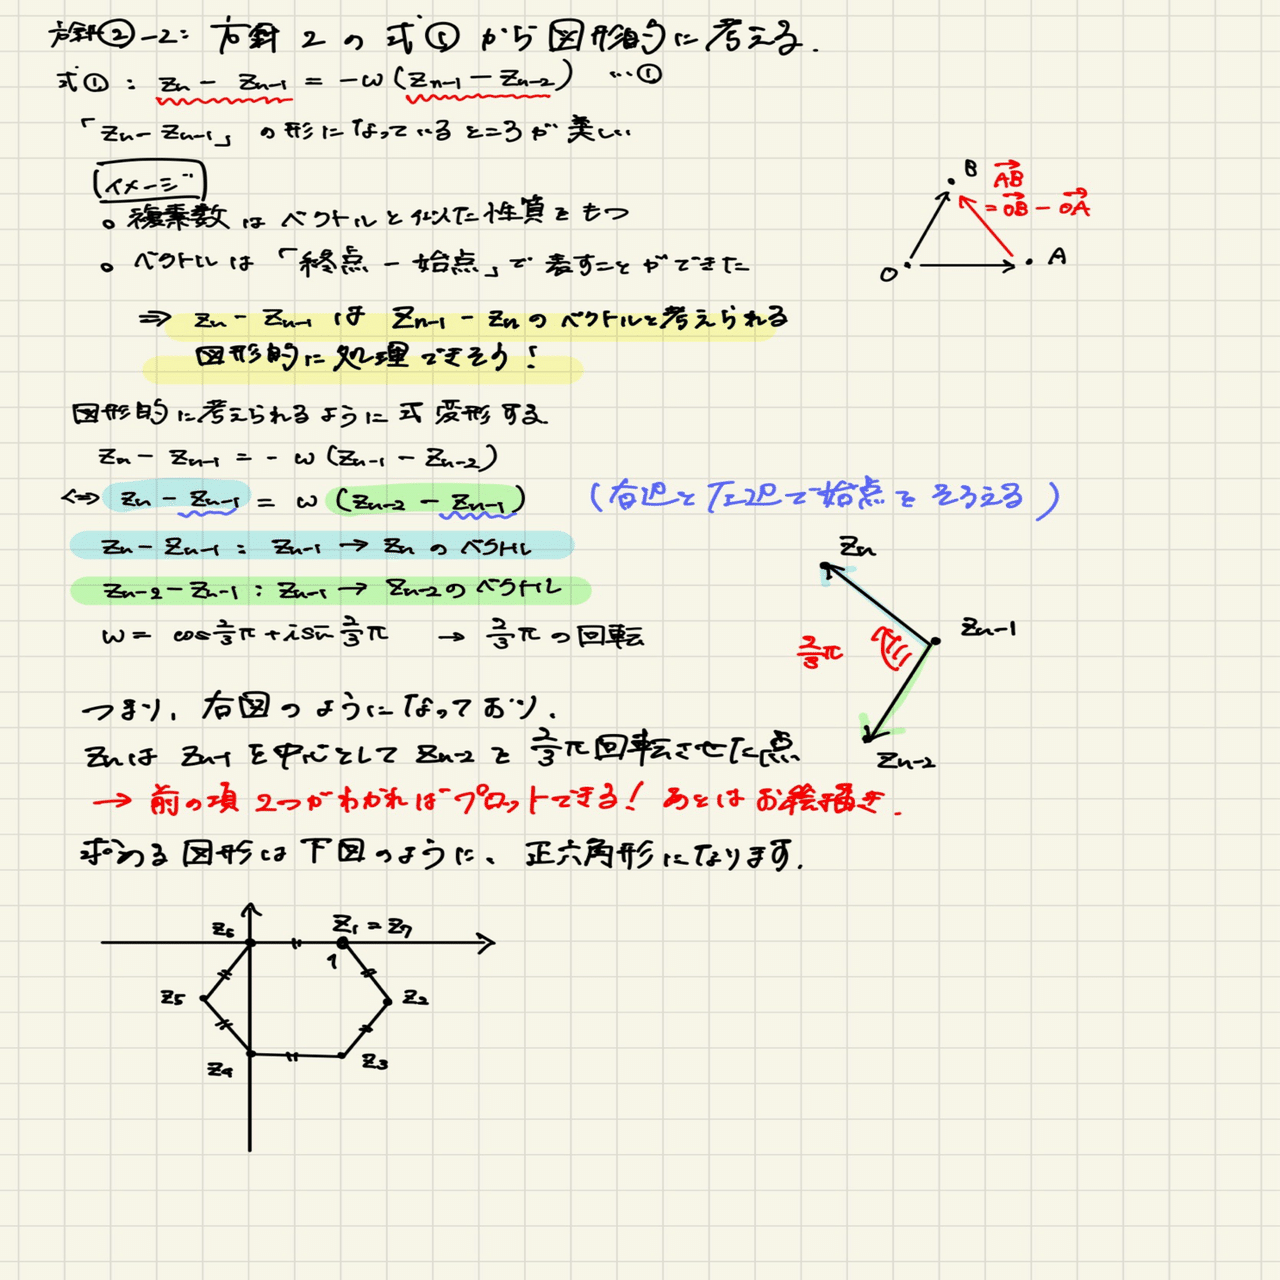 方針②-2: 方針2の式①から図形的に考える.
式①: Zn - Zn-1 = -ω(Zn-1 - Zn-2) …①
「Zn - Zn-1」の形になっているところが美しい
イメージ
○ 複素数はベクトルと似た性質をもつ
○ ベクトルは「終点 - 始点」で表すことができた
⇒ Zn - Zn-1 は Zn-1 - Zn のベクトルと考えられる
図形的に処理できそう!
B AB
= OB - OA
O A
図形的に考えられるように式変形する
Zn - Zn-1 = - ω(Zn-1 - Zn-2)
⇔ Zn - Zn-1 = ω(Zn-2 - Zn-1) (右辺と左辺で始点をそろえる)
Zn - Zn-1 : Zn-1 → Zn のベクトル
Zn-2 - Zn-1 : Zn-1 → Zn-2 のベクトル
ω = cos 2/3 π + i sin 2/3 π → 2/3 π の回転
Zn
Zn-1
2/3 π
Zn-2
つまり、右図のようになっており、
Zn は Zn-1 を中心として Zn-2 を 2/3 π 回転させた点
→ 前の項2つがわかればプロットできる! あとはお絵描き.
求める図形は下図のように、正六角形になります.
Z6 Z1 = Z7
1
Z5 Z2
Z4 Z3